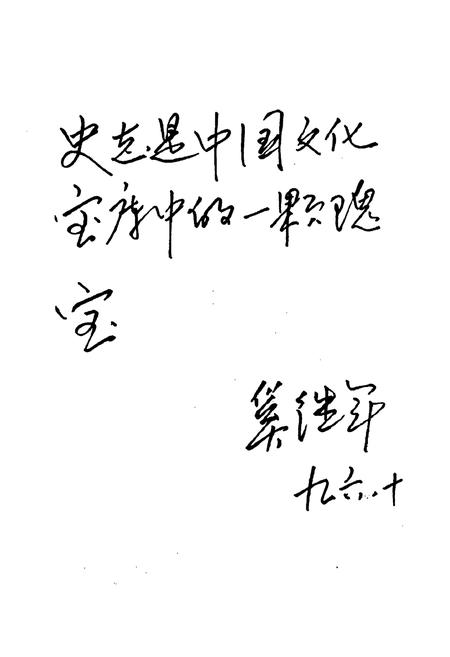 史志是中国文化
宝库中的一颗瑰
宝
继年
九六.十